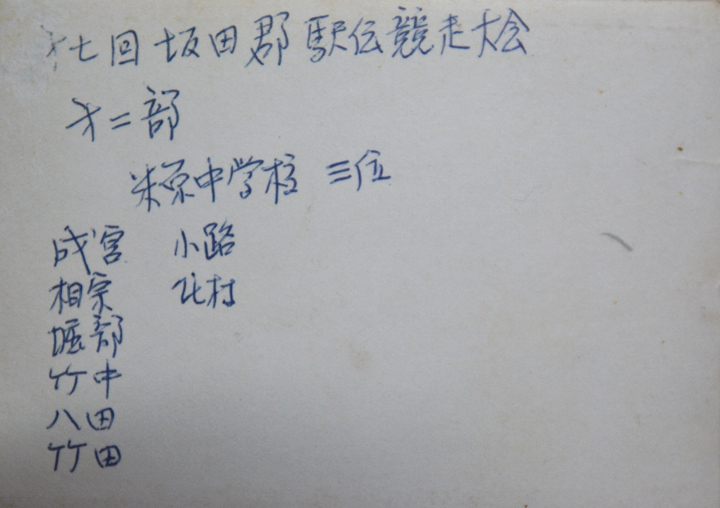 才七回 坂田郡 駅伝競走大会
才二部
米原中学校 三位
成宮 小路
相宗 北村
堀部
竹中
八田
竹田